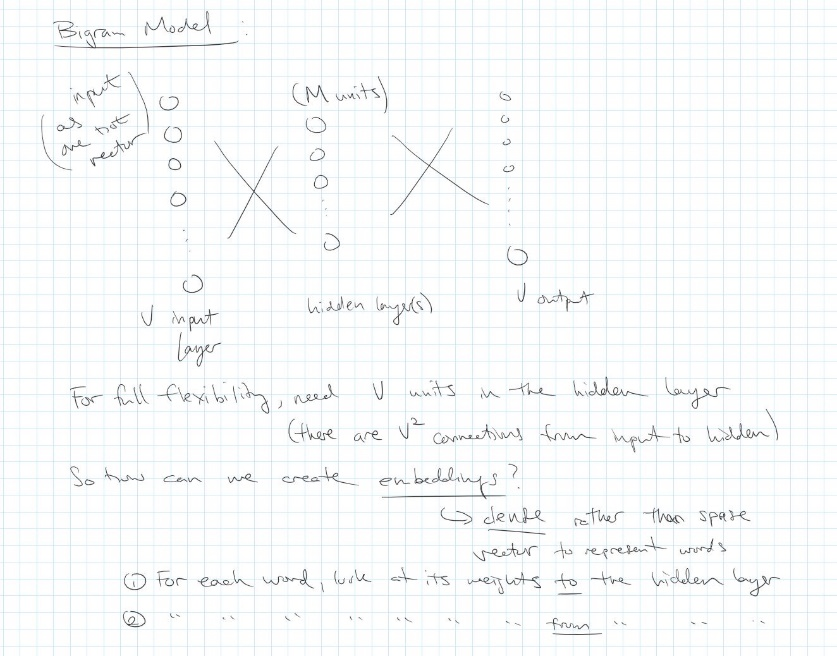 Bigram Model :
input
(as hot
one vector)
(M units)
V input
layer
hidden layer(s)
V output
For full flexibility, need V units in the hidden layer
(there are V² connections from input to hidden)
So how can we create embeddings?
↳ dense rather than sparse
vector to represent words
① For each word, look at its weights to the hidden layer
② " " " " " " " from " " "